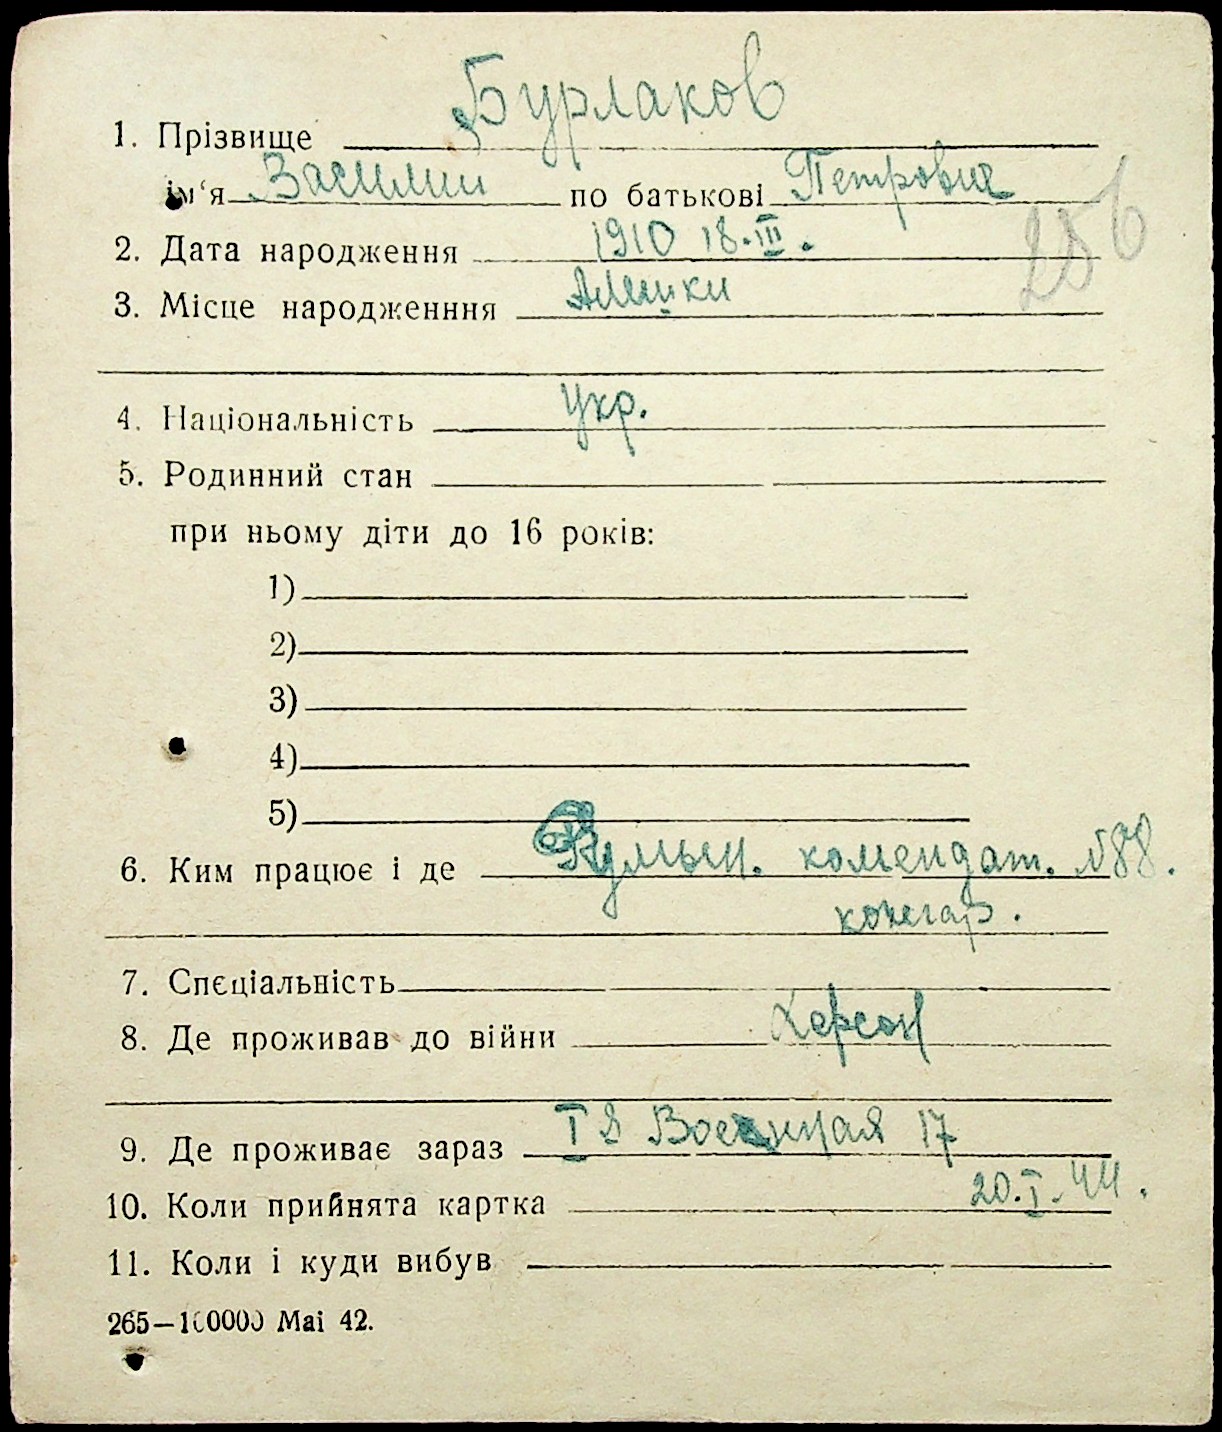 1. Прізвище Бурлаков
ім‘я Василий по батькові Петровие
256
2. Дата народження 1910 18.III.
3. Місце народженння Алешки
4. Національність Укр.
5. Родинний стан
при ньому діти до 16 років:
1)
2)
3)
4)
5)
6. Ким працює і де Румын. комендат. №88.
кочегар.
7. Спєціальність
8. Де проживав до війни Херсон
9. Де проживає зараз I Военная 17
10. Коли прийнята картка 20.I.44.
11. Коли і куди вибув
265—100000 Маі 42.